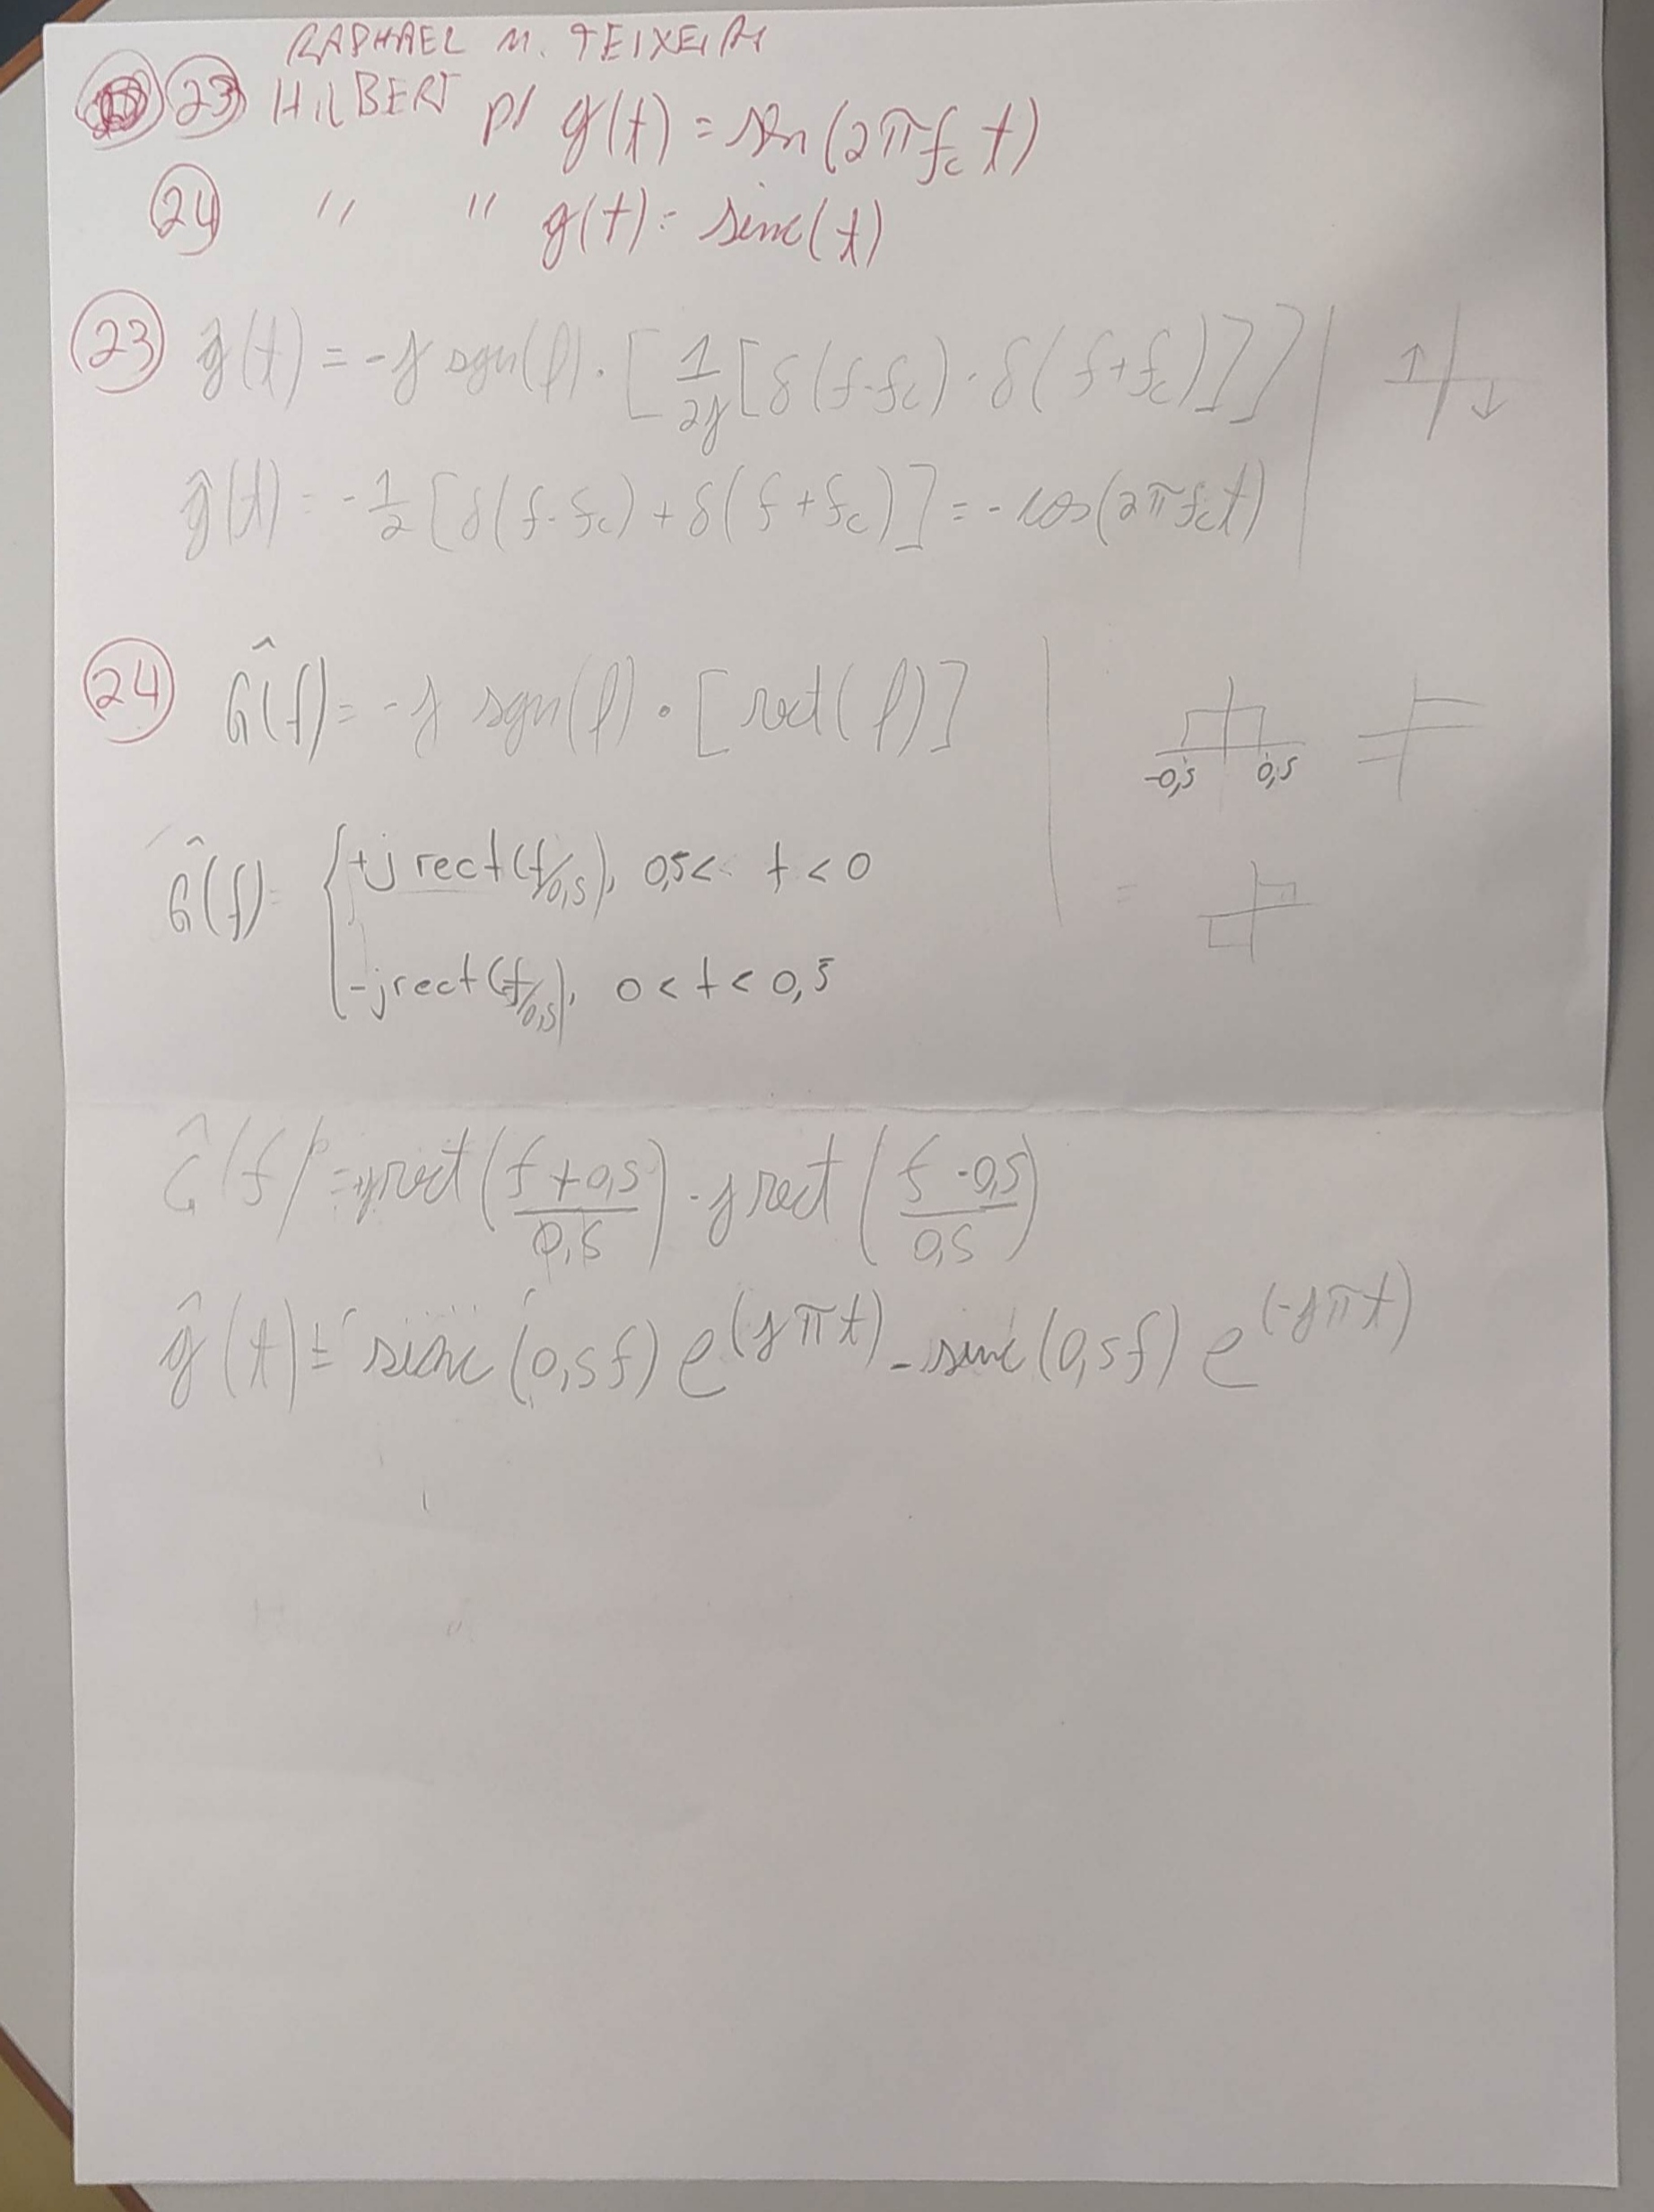 RAPHAEL M. TEIXEIRA
23 HILBERT p/ g(t) = sen(2πf_c t)
24 " " g(t) = sinc(t)
23 ĝ(t) = -j sgn(f) · [1/2j [δ(f-f_c) - δ(f+f_c)]]
ĝ(t) = -1/2 [δ(f-f_c) + δ(f+f_c)] = -cos(2πf_c t)
24 Ĝ(f) = -j sgn(f) · [rect(f)]
-0,5 0,5
Ĝ(f) = { +j rect(f/0,5), 0,5 < f < 0
-j rect(f/0,5), 0 < f < 0,5
=
Ĝ(f) = j rect((f+0,5)/0,5) - j rect((f-0,5)/0,5)
ĝ(t) = sinc(0,5f) e^(jπt) - sinc(0,5f) e^(-jπt)